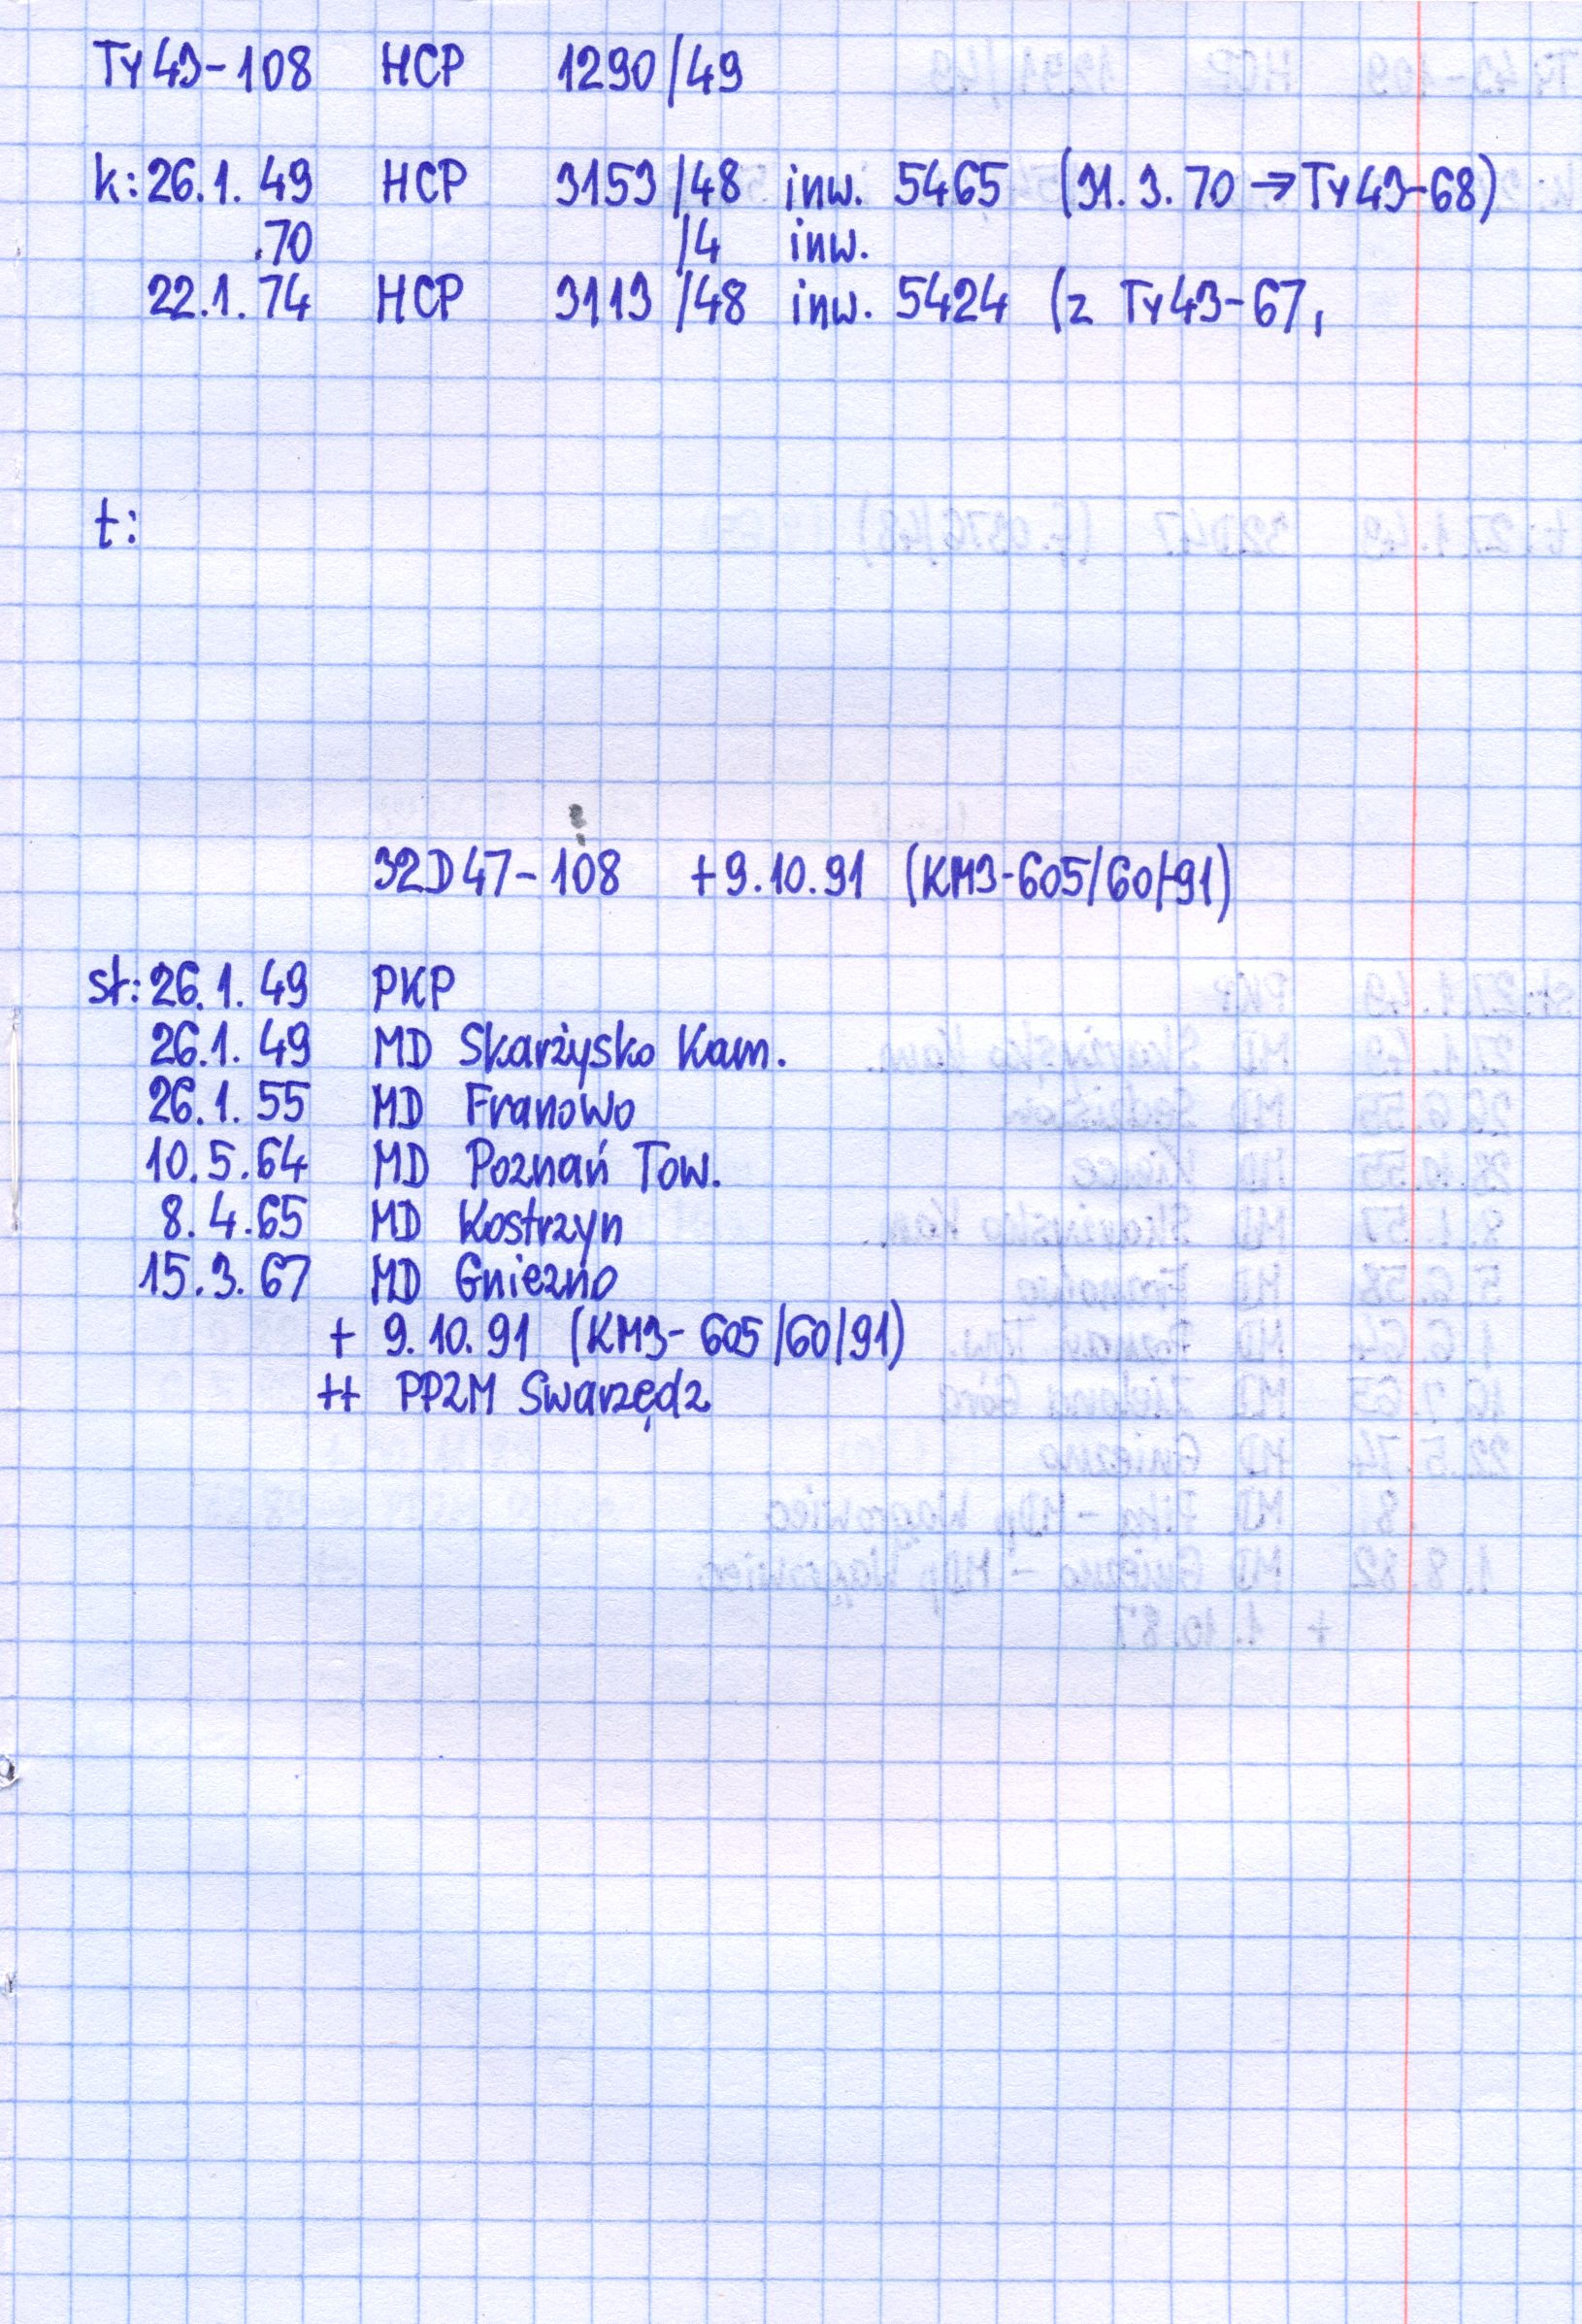 Ty43-108 HCP 1290/49
k: 26.1.49 HCP 3153/48 inw. 5465 (31.3.70 → Ty43-68)
.70 /4 inw.
22.1.74 HCP 3113/48 inw. 5424 (z Ty43-67,
t:
32D47-108 +9.10.91 (KM3-605/60/91)
st: 26.1.49 PKP
26.1.49 MD Skarżysko Kam.
26.1.55 MD Franowo
10.5.64 MD Poznań Tow.
8.4.65 MD Kostrzyn
15.3.67 MD Gniezno
+ 9.10.91 (KM3-605/60/91)
++ PPZM Swarzędz